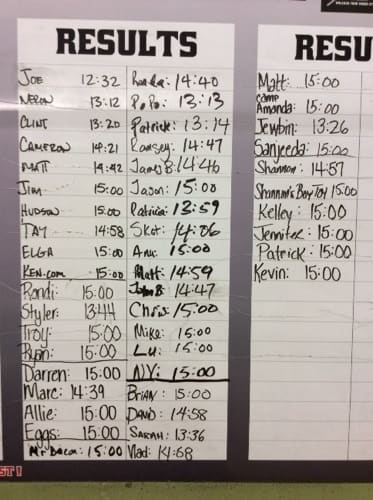 RESULTS
JOE 12:32
NERON 13:12
CLINT 13:20
CAMERON 14:21
MATT 14:42
JIM 15:00
HUDSON 15:00
TAY 14:58
ELGA 15:00
KEN.com 15:00
Randi: 15:00
Styler: 13:44
Troy: 15:00
Ryan: 15:00
Darren: 15:00
Marc: 14:39
Allie: 15:00
Eggs: 15:00
Mr Bacon: 15:00
14:40
PoPo: 13:13
Patrick: 13:14
Ramsey: 14:47
James B: 14:46
Jason: 15:00
Patricia: 13:59
Skot: 14:06
Ann: 15:00
Matt: 14:59
John B: 14:47
Chris: 15:00
Mike: 15:00
Lu: 15:00
NV: 15:00
BRIAN: 15:00
DAVID: 14:58
SARAH: 13:36
Vlad: 14:68
RESU
Matt: 15:00
camp
Amanda: 15:00
Jewbin: 13:26
Sanjeeda: 15:00
Shannon: 14:57
Shannon's Boy Toy 15:00
Kelley: 15:00
Jennifer: 15:00
Patrick: 15:00
Kevin: 15:00
ST!